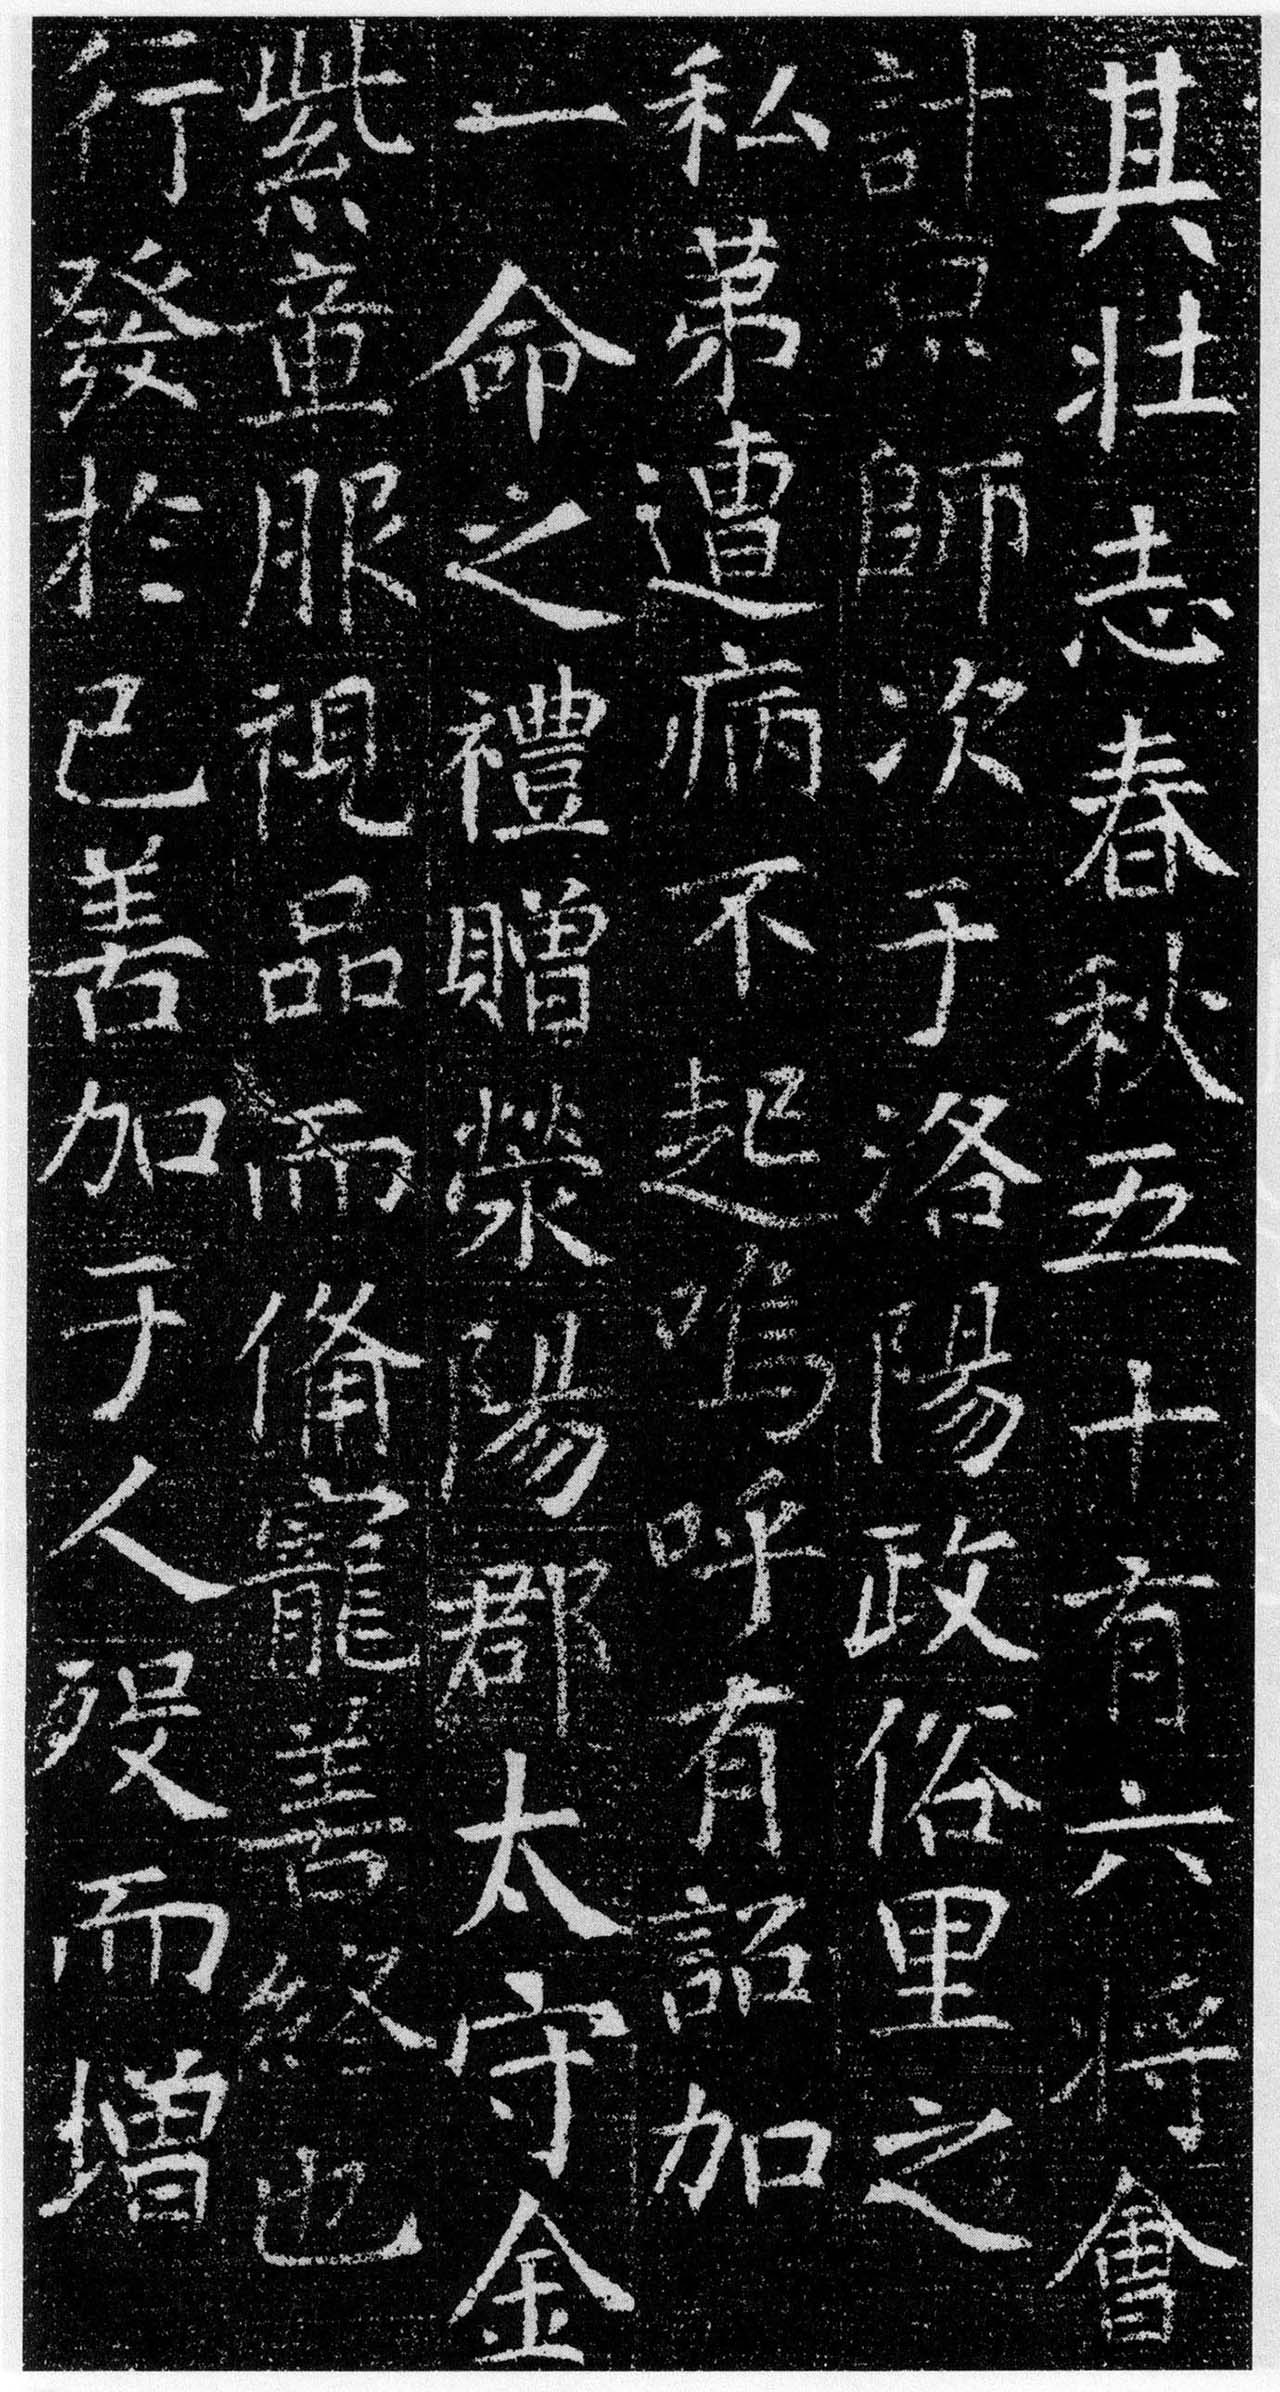 其壯志春秋五十有六將會
計京師次于洛陽政俗里之
私苐遭病不起嗚呼有詔加
一命之禮贈滎陽郡太守金
紫章服視品而俻寵善終也
行發於己善加于人歿而增